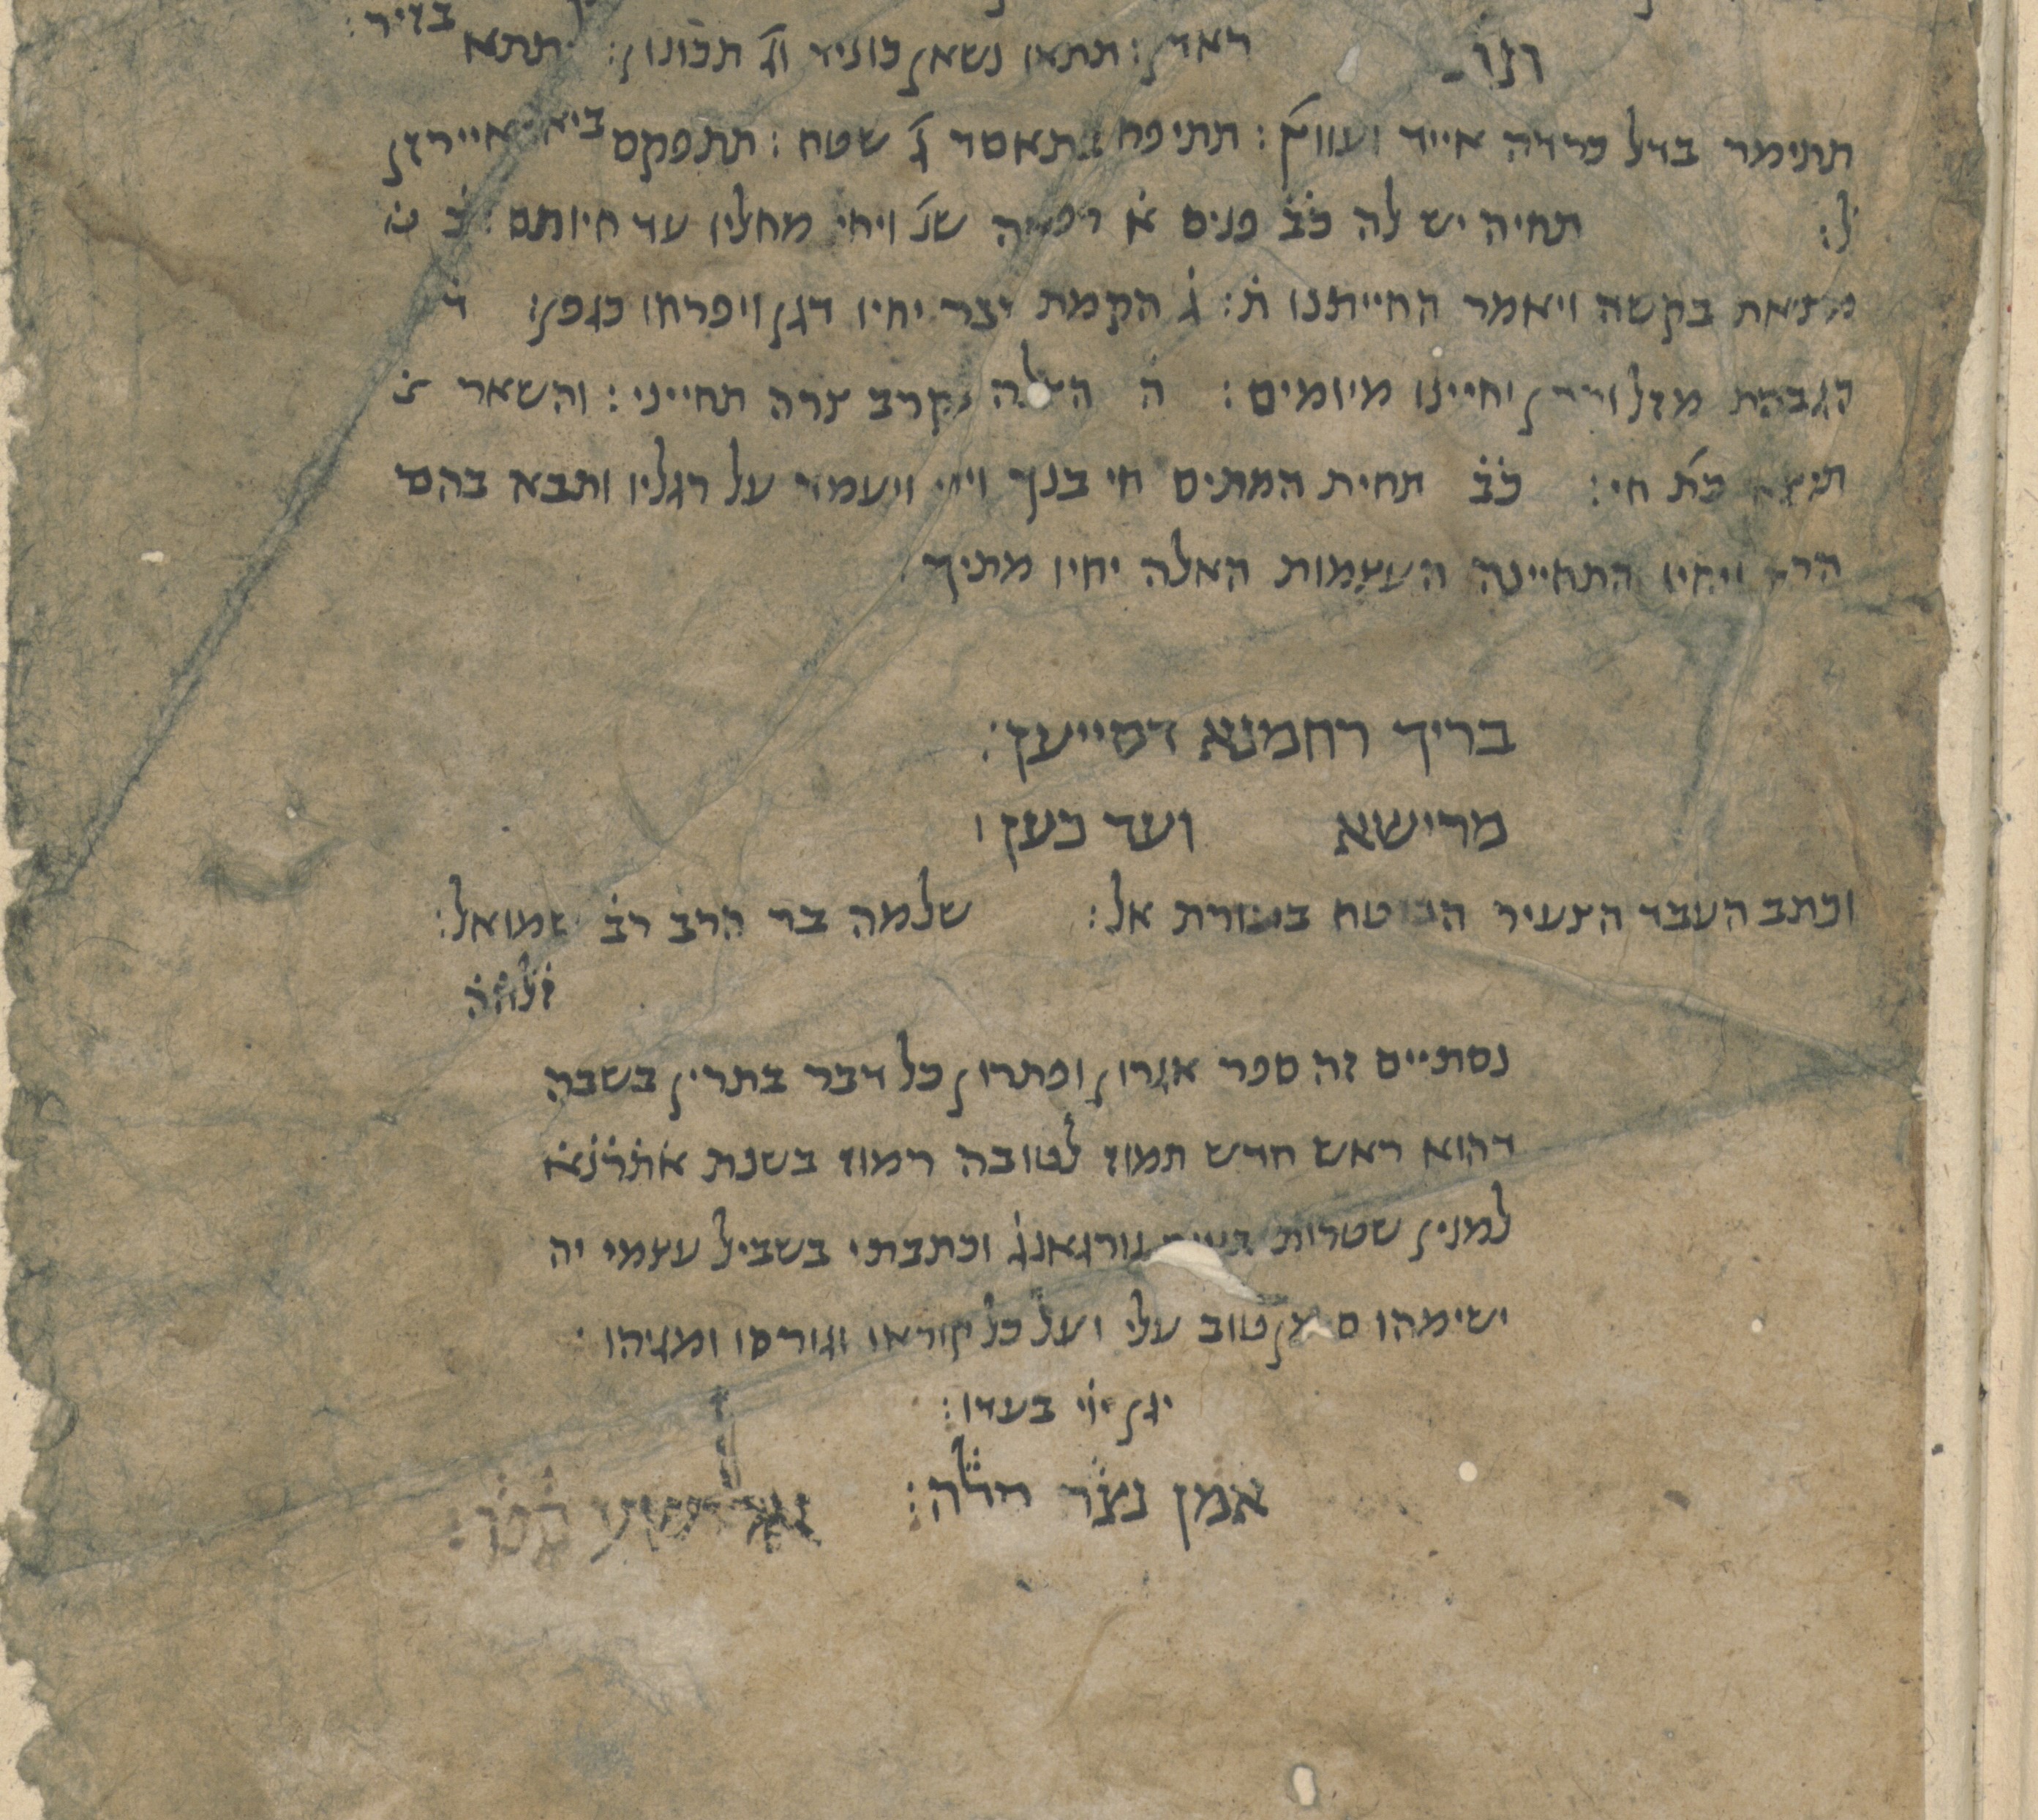 בזיר:
ונו ראדן: תתאו נשאן כוניד וג׳ תכונון: תתא
תתימר בדל כרדה אייד ועווץ׳: תתיפח תאסד ג׳ שטח: תתפקס
ל: תחיה יש לה כב פנים א רפויה שנ׳ ויחי מחליו עד חיותם: ב
מציאת בקשה ויאמר החייתנו ת: ג הקמת יצר יחיו דגן ויפרחו כגפן: ד
הגבהת מזל ודין יחיינו מיומים: ה הצלה בקרב צרה תחייני: והשאר
כת׳ חי: כב תחית המתים חי בנך ויחי ויעמד על רגליו ותבא בהם
הרוח ויחיו התחיינה העצמות האלה יחיו מתיך
בריך רחמנא דסייען:
מרישא ועד כען
וכתב העבד הצעיר הבוטח בעזרת אל: שלמה בר הרב רב שמואל:
זלהה
נסתיים זה ספר אגרון ופתרון כל דבר בתרין בשבה
דהוא ראש חדש תמוז לטובה רמוז בשנת אתרנא
למנין שטרות בעיר גורגאנג׳ וכתבתי בשביל עצמי יה
ישימהו סימן טוב עלי ועל כל קוראו וגורסו ומגיהו
יגן ייי בעדו:
אמן נצר סלה: